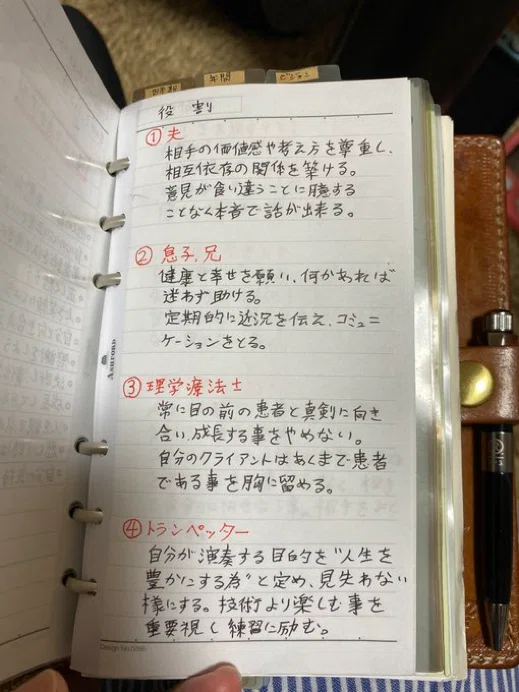 年間
ビジョン
役割
①夫
相手の価値感や考え方を尊重し、
相互依存の関係を築ける。
意見が食い違うことに臆する
ことなく本音で話が出来る。
②息子、兄
健康と幸せを願い、何かあれば
迷わず助ける。
定期的に近況を伝え、コミュニ
ケーションをとる。
③理学療法士
常に目の前の患者と真剣に向き
合い、成長する事をやめない。
自分のクライアントはあくまで患者
である事を胸に留める。
④トランペッター
自分が演奏する目的を"人生を
豊かにする為"と定め、見失わない
様にする。技術より楽しむ事を
重要視し練習に励む。
ASHFORD